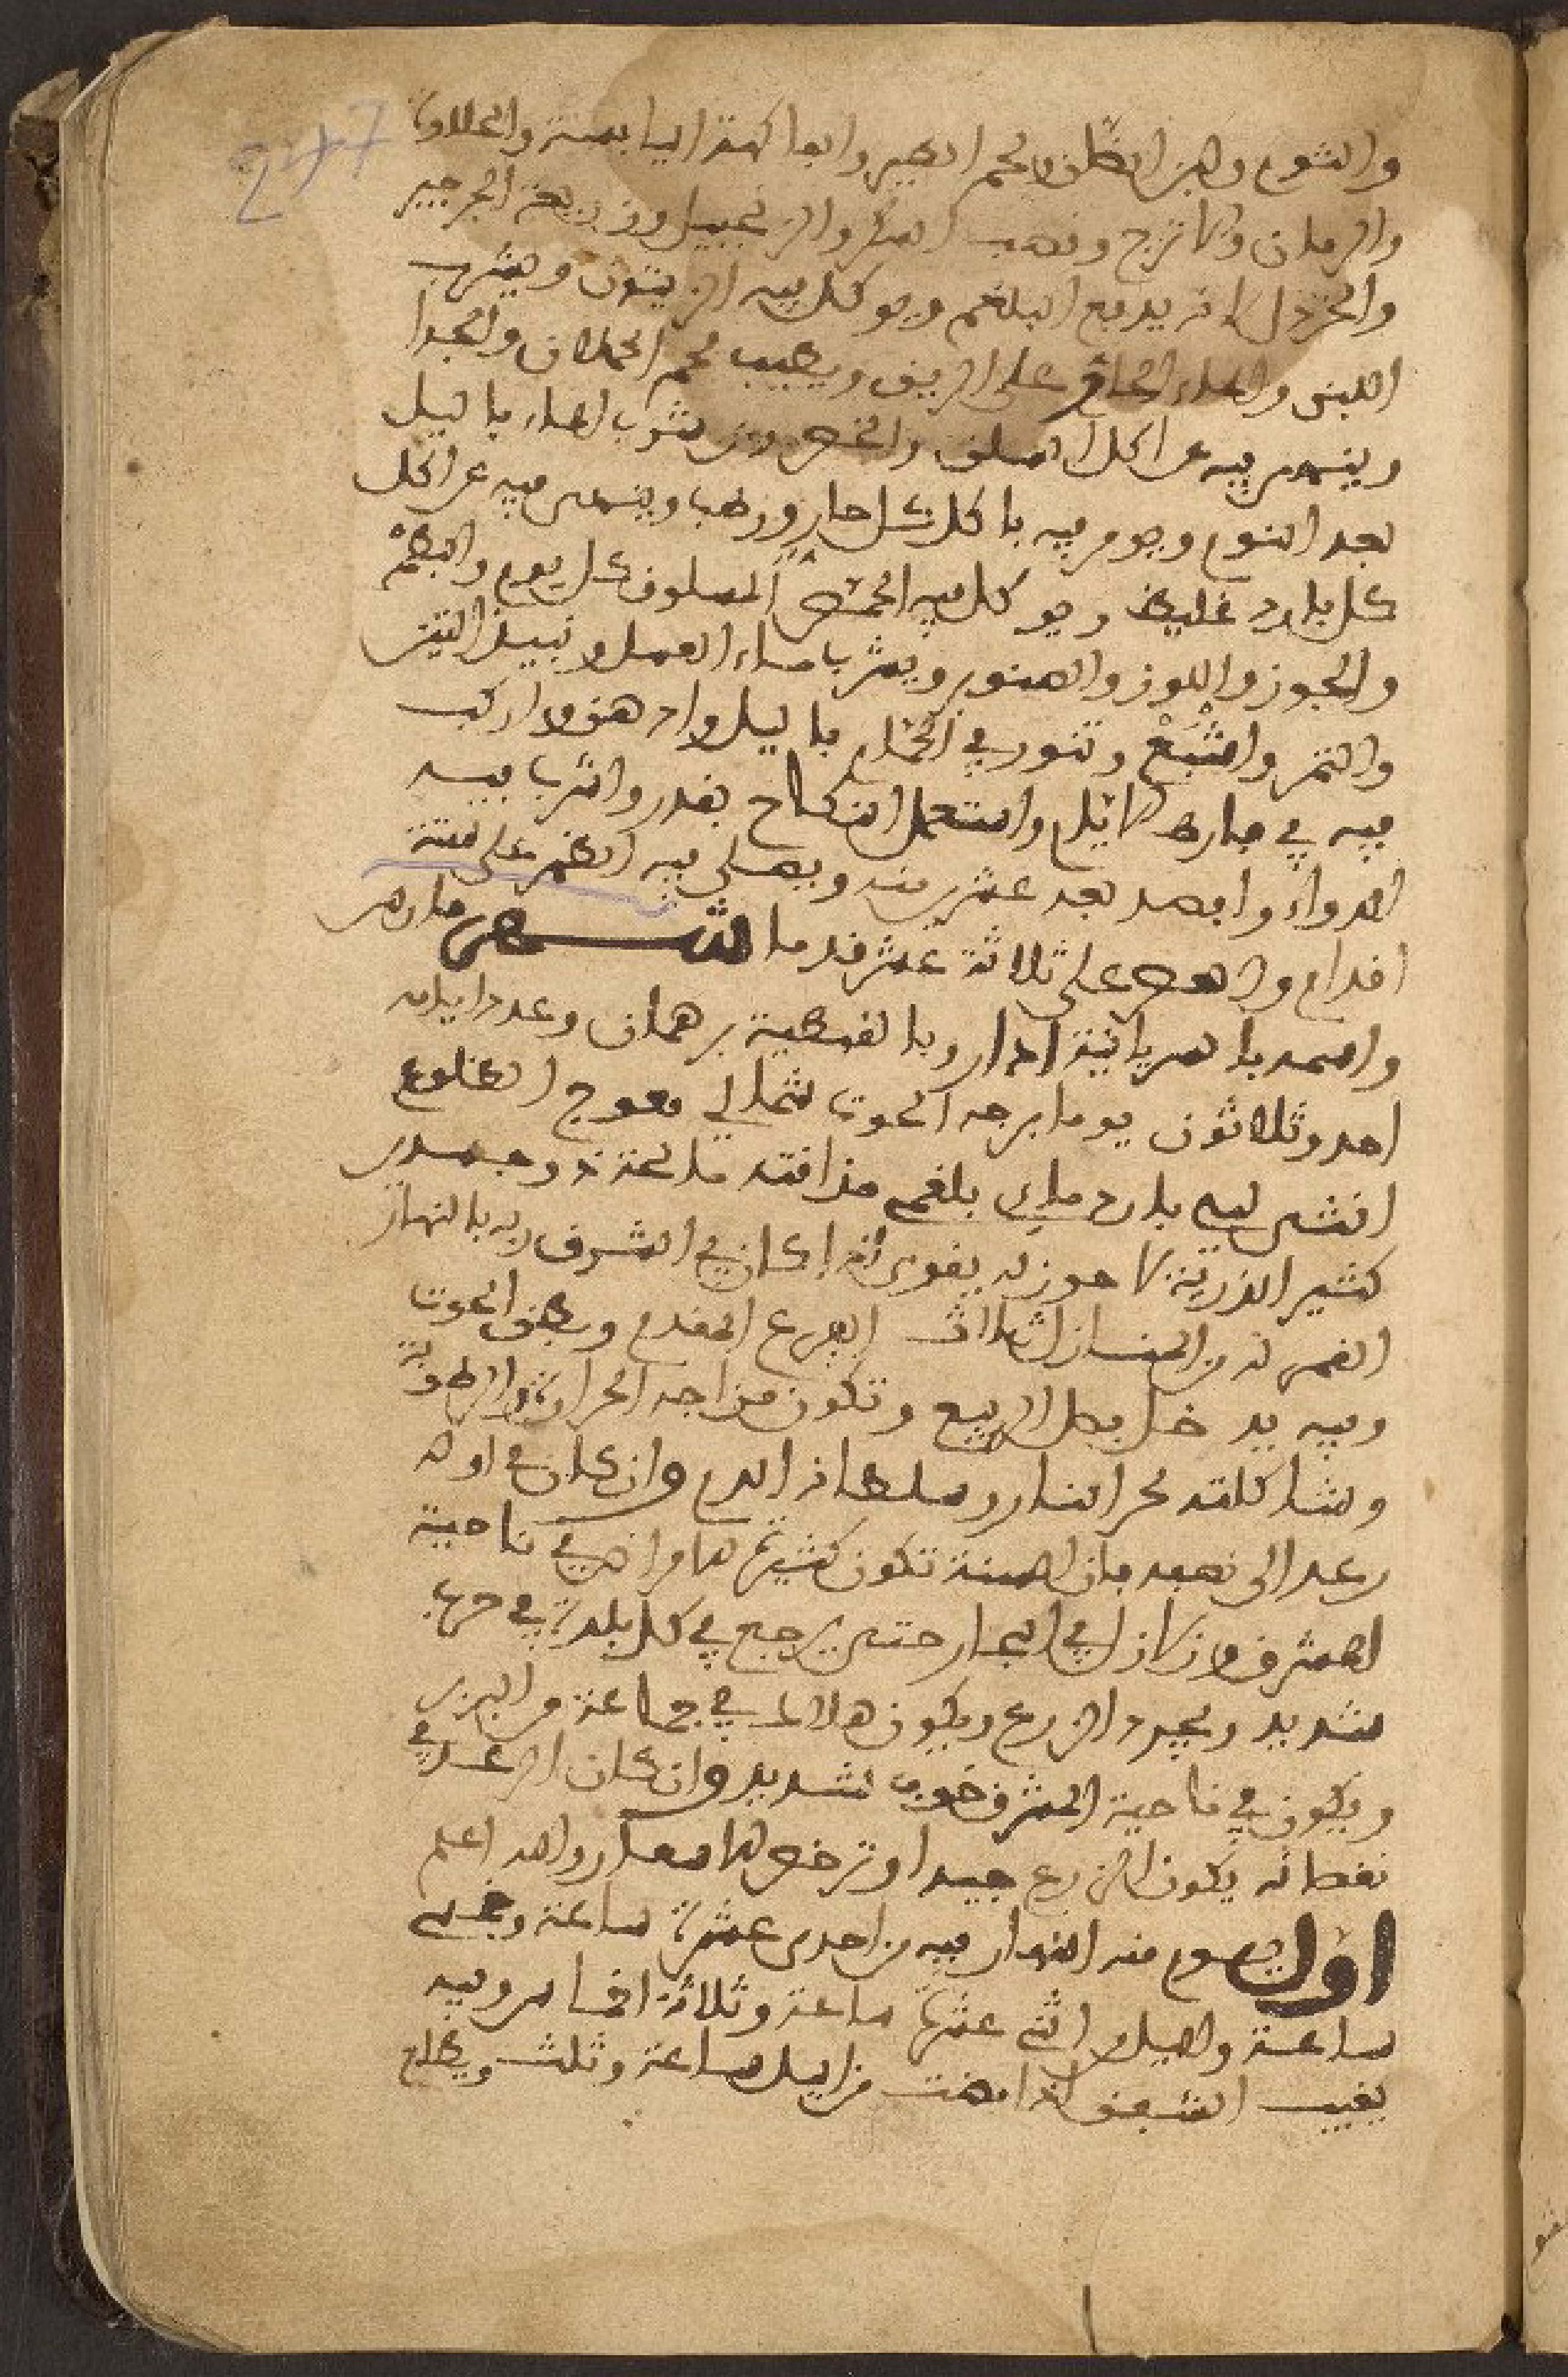 والثوم ولبن الضان ولحم الطير والفاكهة اليابسة والحلاوة
والرمان والاترج وقصب السكر والزنجبيل وزريعة الجرجير
والخردل لانه يدفع البلغم ويوكل فيه الزيتون ويشرب
اللبن والماء الحار على الريق ويطيب لحم الحملان والجدا
وينهى فيه عن اكل السلق والخس وعن شرب الماء باليل
بعد النوم ويومر فيه باكل كل حار ورطب وينهى فيه عن اكل
كل بارد غليظ ويوكل فيه الحمص المسلوق كل يوم والبطم
والجوز واللوز والصنوبر ويشرب ماء العسل ونبيذ التين
والتمر وامشع وتنور في الحمام باليل وادهن واركب
فيه في مارط الايام واستعمل النكاح بقدر واشرب فيه
الدواء وافصد بعد عشرين منه ويصلى فيه الظهر على ستة
اقدام والعصر على ثلاثة عشر قدما شهر مارس
واسمه بالسريانية اذار وبالقبطية برمهات وعدد ايامه
احد وثلاثون يوما برجه الحوت شمالي معوج الطلوع
انثى ليلي بارد مائي بلغمي مذاقته مالحة ذو جسدين
كثير الذرية لا صوت له يقوى اذا كان في الشرف ربه بالنهار
القمر له من المنازل ثلاث الفرع المقدم وبطن الحوت
وفيه يدخل فصل الربيع وتكون مزاجه الحرارة والرطوبة
ومشاكلته لحر النار وسلطانه الدم وان كان في اوله
رعد الى نصفه فان السنة تكون كثيرة الامراض في ناحية
المشرق وزلازل في البحار حتى يرجع في كل بلدة في حرب
شديد ويجود الزرع ويكون هلاك في جماعة من البربر
ويكون في ناحية المشرق خوف شديد وان كان الرعد في
نقصانه يكون الزرع جيدا وترخص الاسعار والله اعلم
اول يوم منه النهار فيه من احدى عشرة ساعة وخمسي
ساعة والليل اثني عشرة ساعة وثلاثة اخماس وفيه
يغيب الشفق اذا مضت من اليل ساعة وثلث ويطلع